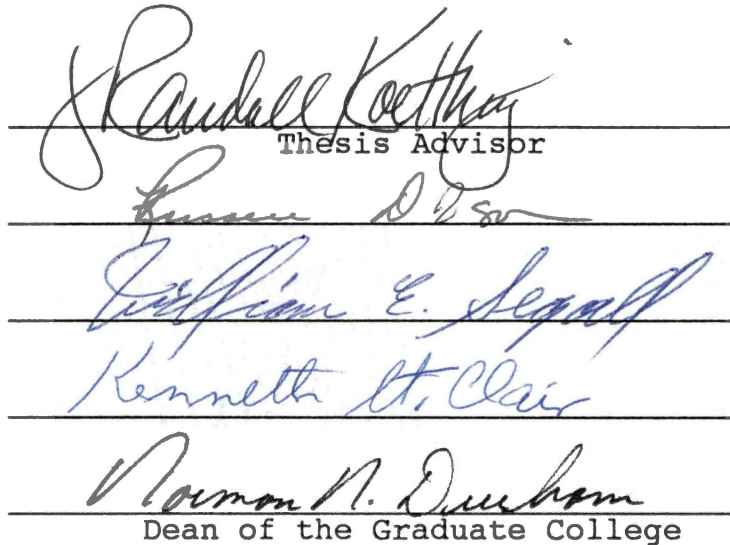 J Randall Koetting
Thesis Advisor
Russell Dobson
William E. Segall
Kenneth St. Clair
Norman N. Durham
Dean of the Graduate College